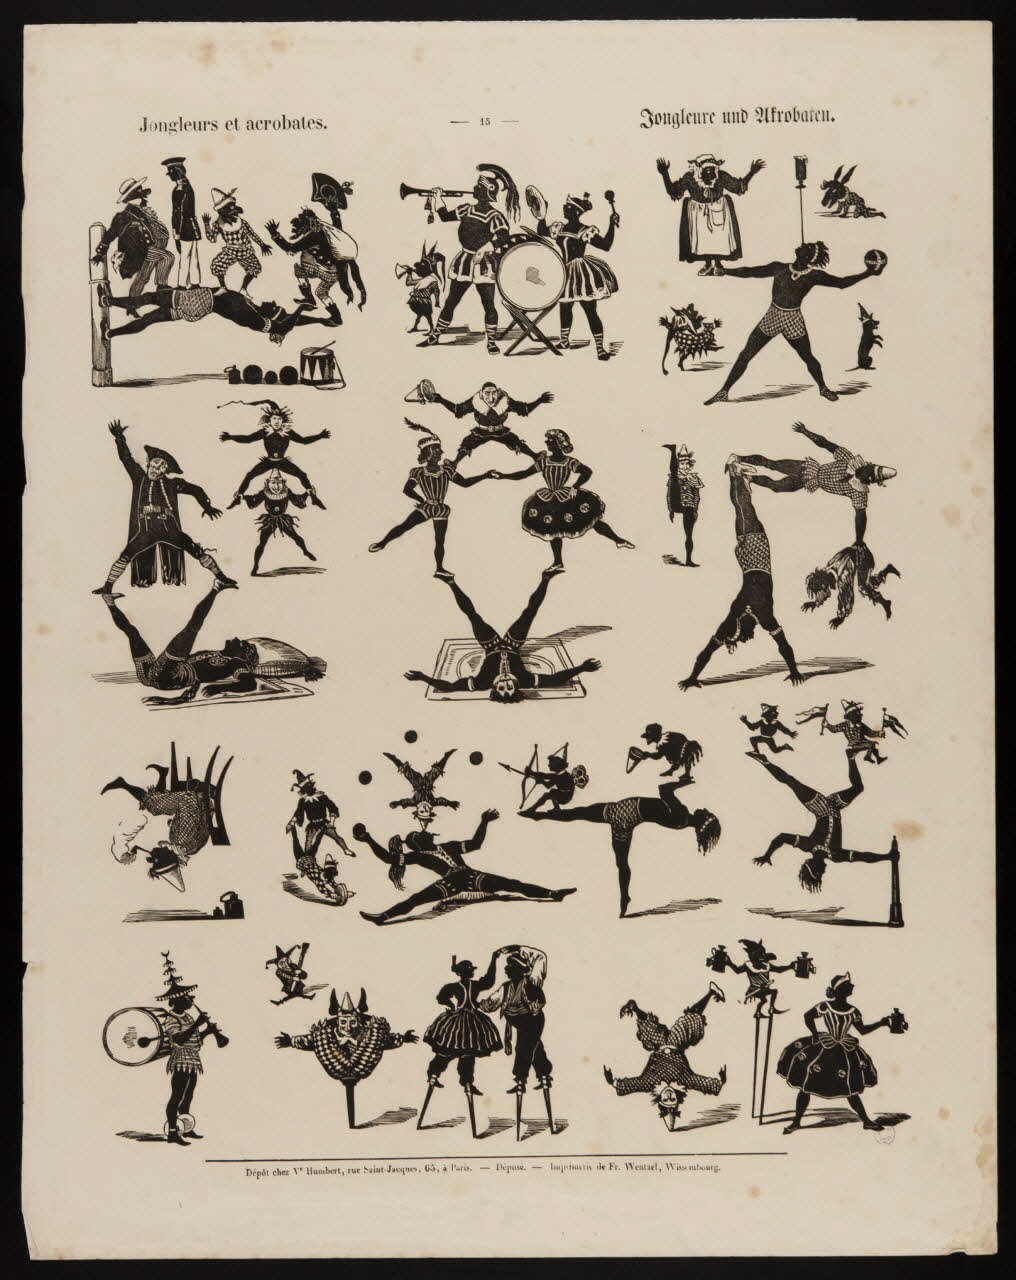 Jongleurs et acrobates.
— 15 —
Jongleure und Akrobaten.
Dépôt chez Vᵉ Humbert, rue Saint-Jacques, 65, à Paris. — Déposé. — Imprimerie de Fr. Wentzel, Wissembourg.